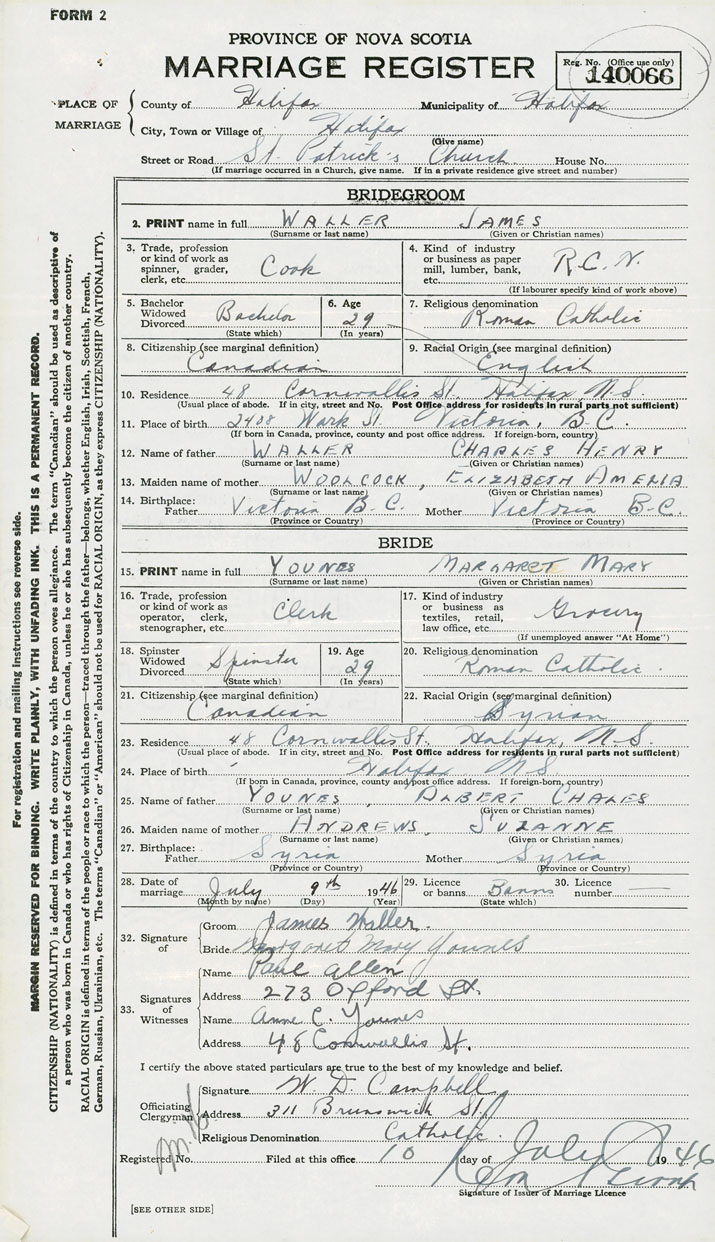 FORM 2
PROVINCE OF NOVA SCOTIA
MARRIAGE REGISTER
Reg. No. (Office use only)
140066
PLACE OF MARRIAGE
County of Halifax Municipality of Halifax
City, Town or Village of Halifax
(Give name)
Street or Road St. Patrick's Church House No.
(If marriage occurred in a Church, give name. If in a private residence give street and number)
BRIDEGROOM
2. PRINT name in full WALLER JAMES
(Surname or last name) (Given or Christian names)
3. Trade, profession or kind of work as spinner, grader, clerk, etc. Cook
4. Kind of industry or business as paper mill, lumber, bank, etc. R.C.N.
(If labourer specify kind of work above)
5. Bachelor Widowed Divorced Bachelor
(State which)
6. Age 29
(In years)
7. Religious denomination Roman Catholic
8. Citizenship (see marginal definition) Canadian
9. Racial Origin (see marginal definition) English
10. Residence 48 Cornwallis St. Halifax, N.S.
(Usual place of abode. If in city, street and No. Post Office address for residents in rural parts not sufficient)
11. Place of birth 2408 Work St. Victoria, B.C.
(If born in Canada, province, county and post office address. If foreign-born, country)
12. Name of father WALLER CHARLES HENRY
(Surname or last name) (Given or Christian names)
13. Maiden name of mother WOOLCOCK, ELIZABETH AMELIA
(Surname or last name) (Given or Christian names)
14. Birthplace: Father Victoria B.C. Mother Victoria B.C.
(Province or Country) (Province or Country)
BRIDE
15. PRINT name in full YOUNES MARGARET MARY
(Surname or last name) (Given or Christian names)
16. Trade, profession or kind of work as operator, clerk, stenographer, etc. Clerk
17. Kind of industry or business as textiles, retail, law office, etc. Grocery
(If unemployed answer "At Home")
18. Spinster Widowed Divorced Spinster
(State which)
19. Age 29
(In years)
20. Religious denomination Roman Catholic.
21. Citizenship (see marginal definition) Canadian
22. Racial Origin (see marginal definition) Syrian
23. Residence 48 Cornwallis St. Halifax, N.S.
(Usual place of abode. If in city, street and No. Post Office address for residents in rural parts not sufficient)
24. Place of birth Halifax N.S.
(If born in Canada, province, county and post office address. If foreign-born, country)
25. Name of father YOUNES, ALBERT CHALES
(Surname or last name) (Given or Christian names)
26. Maiden name of mother ANDREWS, SUZANNE
(Surname or last name) (Given or Christian names)
27. Birthplace: Father Syria Mother Syria
(Province or Country) (Province or Country)
28. Date of marriage July 9th 1946
(Month by name) (Day) (Year)
29. Licence or banns Banns
(State which)
30. Licence number
32. Signature of
Groom James Waller.
Bride Margaret Mary Younes
33. Signatures of Witnesses
Name Paul Allen
Address 273 Oxford St.
Name Anne C. Younes
Address 48 Cornwallis St.
I certify the above stated particulars are true to the best of my knowledge and belief.
Officiating Clergyman
Signature W. D. Campbell
Address 311 Brunswick St.
Religious Denomination Catholic.
Registered No. Filed at this office 10 day of July 1946
Signature of Issuer of Marriage Licence
[SEE OTHER SIDE]
For registration and mailing instructions see reverse side.
MARGIN RESERVED FOR BINDING. WRITE PLAINLY, WITH UNFADING INK. THIS IS A PERMANENT RECORD.
CITIZENSHIP (NATIONALITY) is defined in terms of the country to which the person owes allegiance. The term "Canadian" should be used as descriptive of
a person who was born in Canada or who has rights of Citizenship in Canada, unless he or she has subsequently become the citizen of another country.
RACIAL ORIGIN is defined in terms of the people or race to which the person—traced through the father—belongs, whether English, Irish, Scottish, French,
German, Russian, Ukrainian, etc. The terms "Canadian" or "American" should not be used for RACIAL ORIGIN, as they express CITIZENSHIP (NATIONALITY).